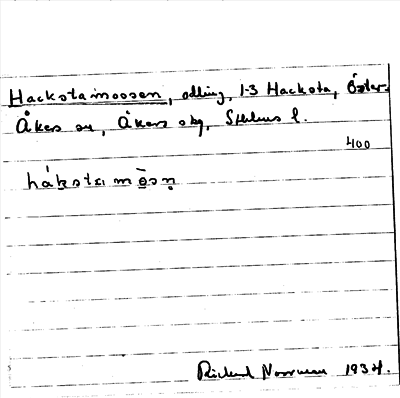 Hackstamossen, odling, 1-3 Hacksta, Öster-
Åkers sn, Åkers skg, Sthlms l.
400
hákstɑmò̱sn̥
Rickard Norrman 1934.